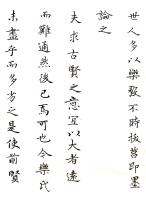 世人多以樂毅不時拔莒即墨
論之
夫求古賢之意宜以大者遠
而難通然後已焉可也今樂氏
未盡乎而多劣之是使前賢